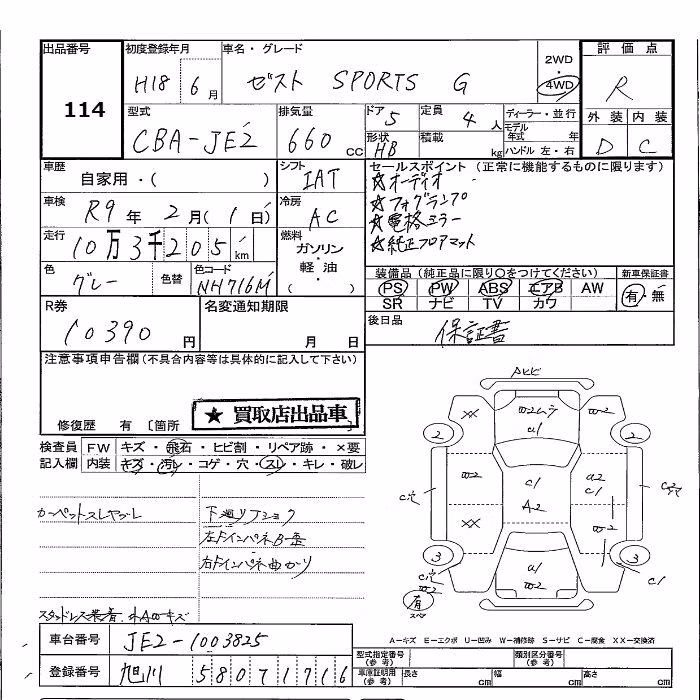 出品番号 初度登録年月 車名・グレード 2WD・4WD 評価点
114 H18 6月 ゼスト SPORTS G R
型式 排気量 ドア 5 定員 4人 ディーラー・並行 外装 内装
CBA-JE2 660cc 形状 HB 積載 kg モデル年式 年 D C
ハンドル 左・右
車歴 シフト セールスポイント (正常に機能するものに限ります)
自家用・( ) IAT ☆オーディオ
車検 R9年 2月(1日) 冷房 AC ☆フォグランプ
☆電格ミラー
走行 10万3千205km 燃料 ガソリン・軽油 ☆純正フロアマット
色 グレー 色替 色コード NH716M 装備品 (純正品に限り○をつけてください) 新車保証書
PS PW ABS エアB AW 有・無
SR ナビ TV カワ
R券 10390円 名変通知期限 月 日 後日品 保証書
注意事項申告欄(不具合内容等は具体的に記入して下さい)
修復歴 有 〔箇所 〕
★ 買取店出品車
検査員記入欄 FW キズ・飛石・ヒビ割・リペア跡・×要
内装 キズ・汚レ・コゲ・穴・スレ・キレ・破レ
カーペットスレヤブレ
下廻りJショク
左ドインパネB一歪
右ドインパネ曲がり
スタッドレス装着
A-キズ E-エクボ U-凹み W-補修跡 S-サビ C-腐食 XX-交換済
車台番号 JE2-1003825 型式指定番号(参考) 類別区分番号(参考)
登録番号 旭川 580 71716 車庫証明用(参考) 長さ cm 幅 cm 高さ cm
XX
W2ムラ
a1
W2
2
2
W2
C1
A2
XX
a2
C1
W2
3
3
a1
W2
有
C1